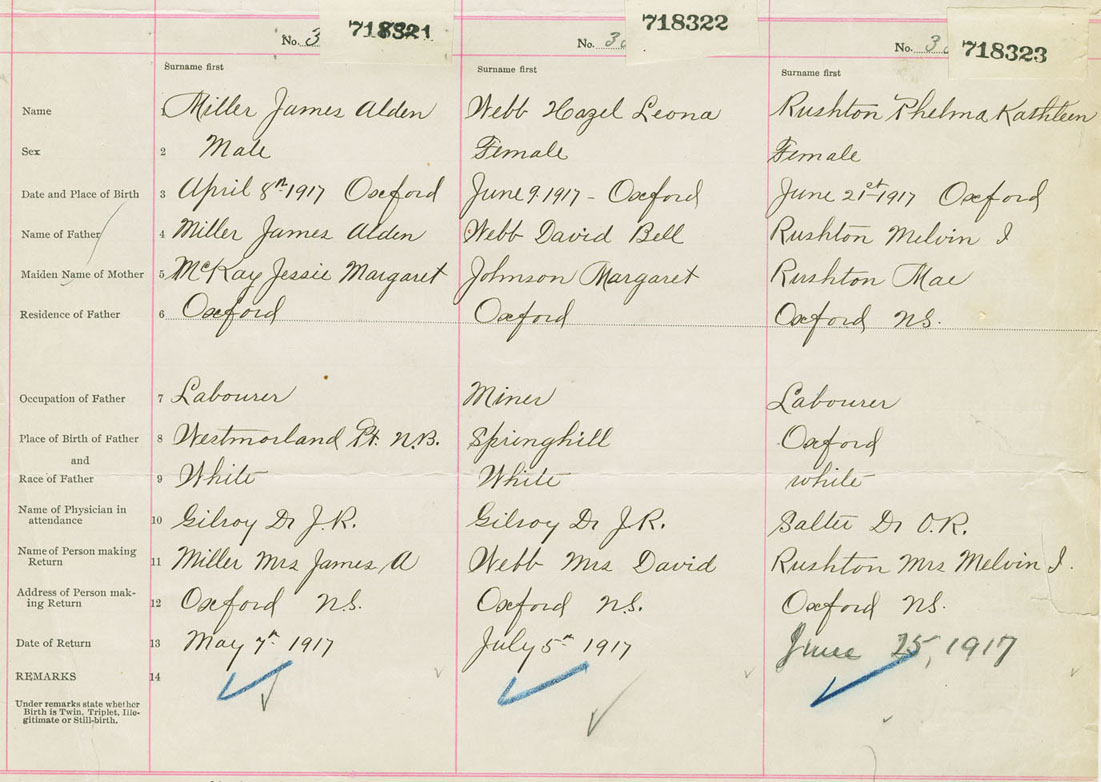 No. 3 718321 No. 30 718322 No. 30 718323
Surname first Surname first Surname first
Name 1 Miller James Alden Webb Hazel Leona Rushton Thelma Kathleen
Sex 2 Male Female Female
Date and Place of Birth 3 April 8th 1917 Oxford June 9. 1917 - Oxford June 21st 1917 Oxford
Name of Father 4 Miller James Alden Webb David Bell Rushton Melvin I
Maiden Name of Mother 5 McKay Jessie Margaret Johnson Margaret Rushton Mae
Residence of Father 6 Oxford Oxford Oxford N.S.
Occupation of Father 7 Labourer Miner Labourer
Place of Birth of Father 8 Westmorland Pt. N.B. Springhill Oxford
and
Race of Father 9 White White white
Name of Physician in
attendance 10 Gilroy Dr J.R. Gilroy Dr J.R. Salter Dr O.R.
Name of Person making
Return 11 Miller Mrs James A Webb Mrs David Rushton Mrs Melvin I.
Address of Person mak-
ing Return 12 Oxford N.S. Oxford N.S. Oxford N.S.
Date of Return 13 May 7th 1917 July 5th 1917 June 25, 1917
REMARKS 14
Under remarks state whether
Birth is Twin, Triplet, Ille-
gitimate or Still-birth.